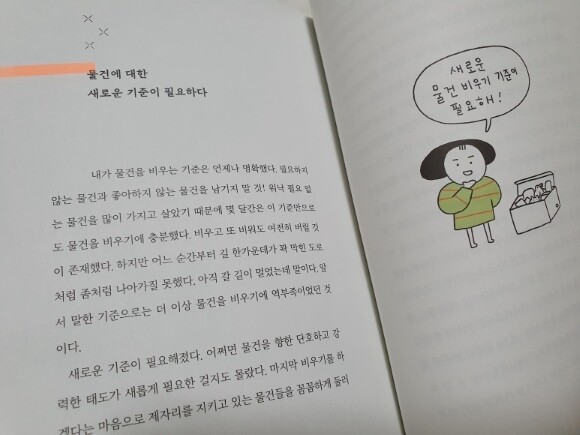 물건에 대한
새로운 기준이 필요하다
내가 물건을 비우는 기준은 언제나 명확했다. 필요하지
않는 물건과 좋아하지 않는 물건을 남기지 말 것! 워낙 필요 없
는 물건을 많이 가지고 살았기 때문에 몇 달간은 이 기준만으로
도 물건을 비우기에 충분했다. 비우고 또 비워도 여전히 버릴 것
이 존재했다. 하지만 어느 순간부터 길 한가운데가 꽉 막힌 도로
처럼 좀처럼 나아가질 못했다. 아직 갈 길이 멀었는데 말이다. 앞
서 말한 기준으로는 더 이상 물건을 비우기에 역부족이었던 것
이다.
새로운 기준이 필요해졌다. 어쩌면 물건을 향한 단호하고 강
력한 태도가 새롭게 필요한 걸지도 몰랐다. 마지막 비우기를 하
겠다는 마음으로 제자리를 지키고 있는 물건들을 꼼꼼하게 둘러
새로운
물건 비우기 기준이
필요해!